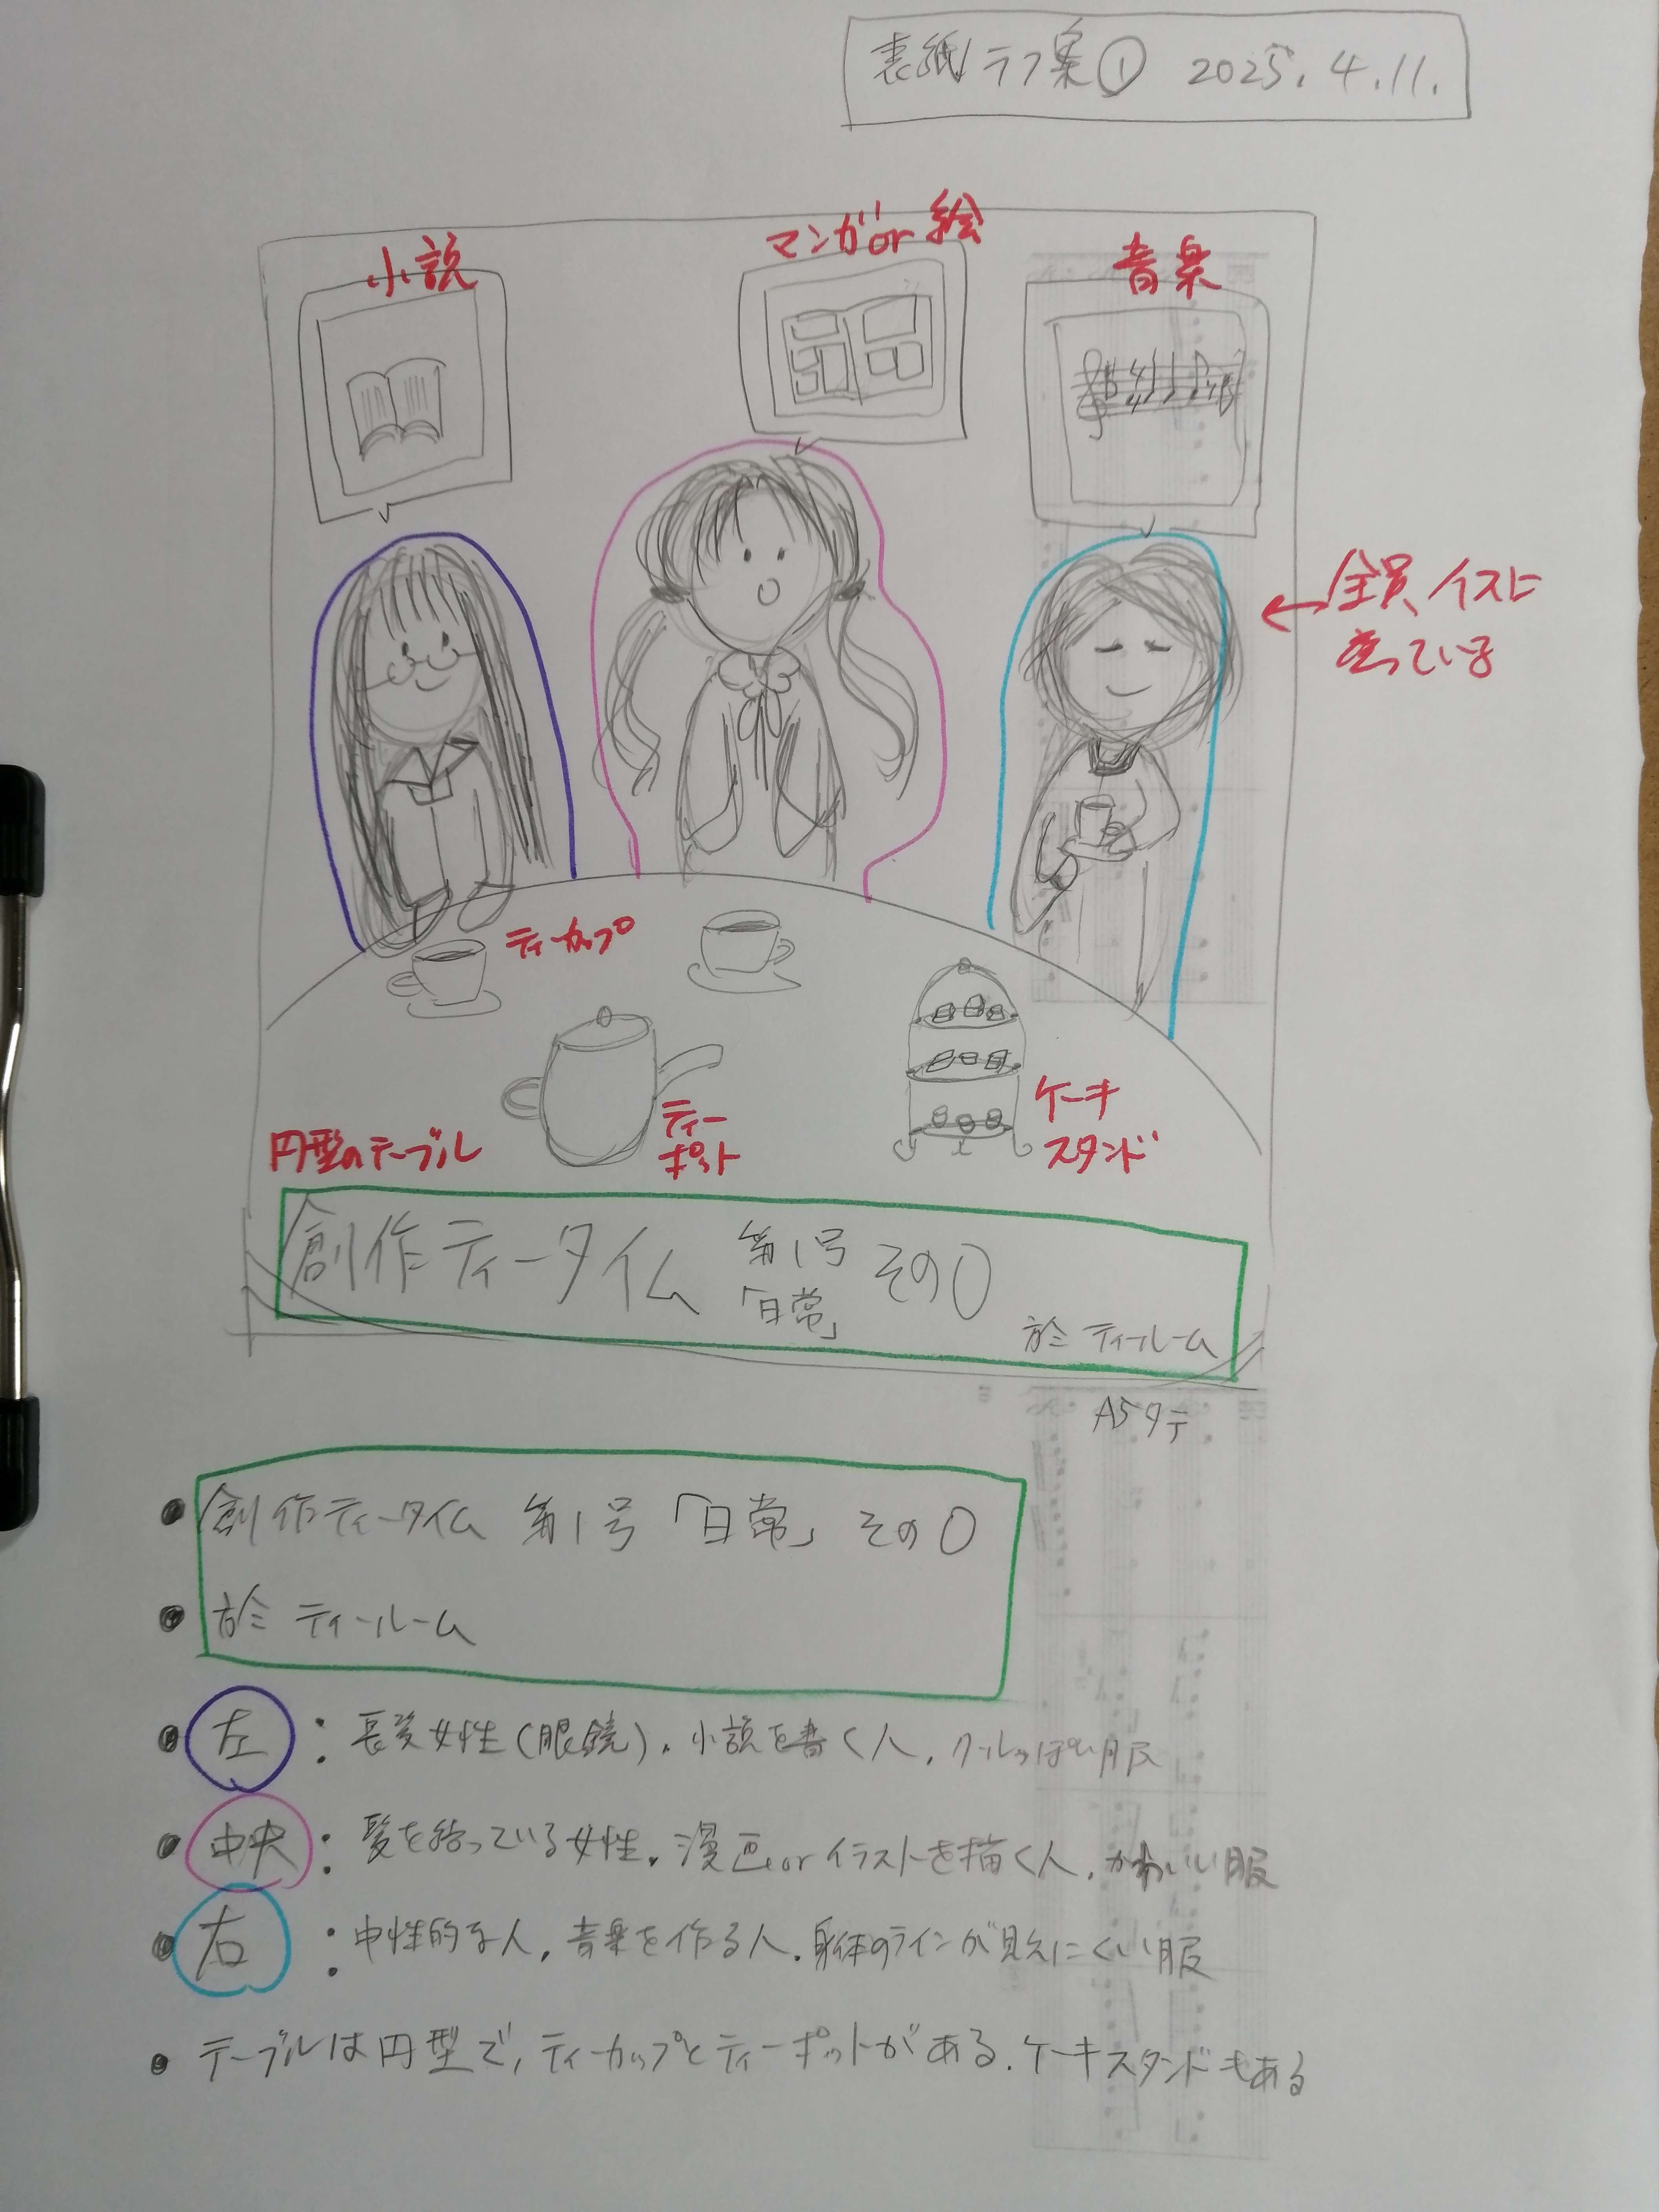 表紙ラフ案① 2025.4.11.
小説
マンガor絵
音楽
←全員、イスに
座っている
ティーカップ
円型のテーブル
ティー
ポット
ケーキ
スタンド
創作ティータイム 第1号 その0
「日常」
於:ティールーム
A5タテ
● 創作ティータイム 第1号 「日常」 その0
● 於:ティールーム
● 左:長髪女性(眼鏡).小説を書く人.クールっぽい服
● 中央:髪を結っている女性.漫画orイラストを描く人.かわいい服
● 右:中性的な人.音楽を作る人.身体のラインが見えにくい服
● テーブルは円型で,ティーカップとティーポットがある.ケーキスタンドもある